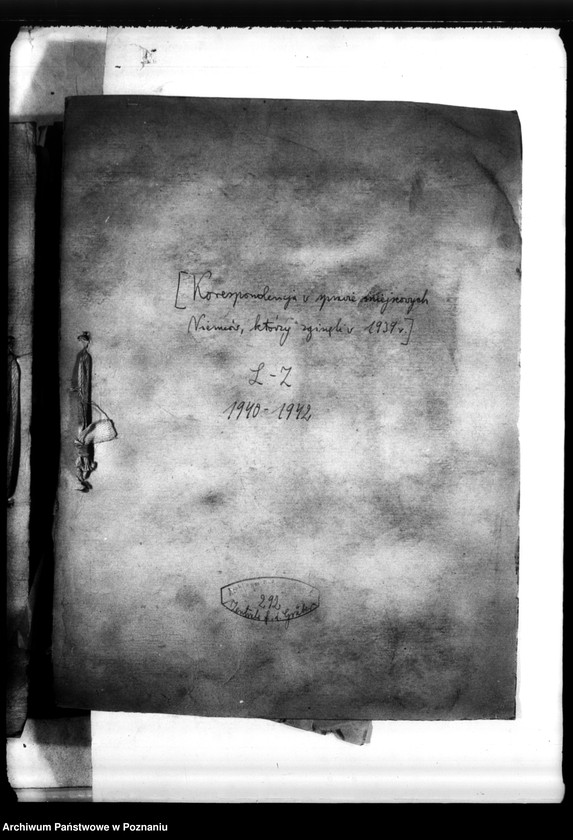 [Korespondencja w sprawie miejscowych
Niemców, którzy zginęli w 1939 r.]
L - Z
1940 - 1942
292
Archiwum Państwowe w Poznaniu